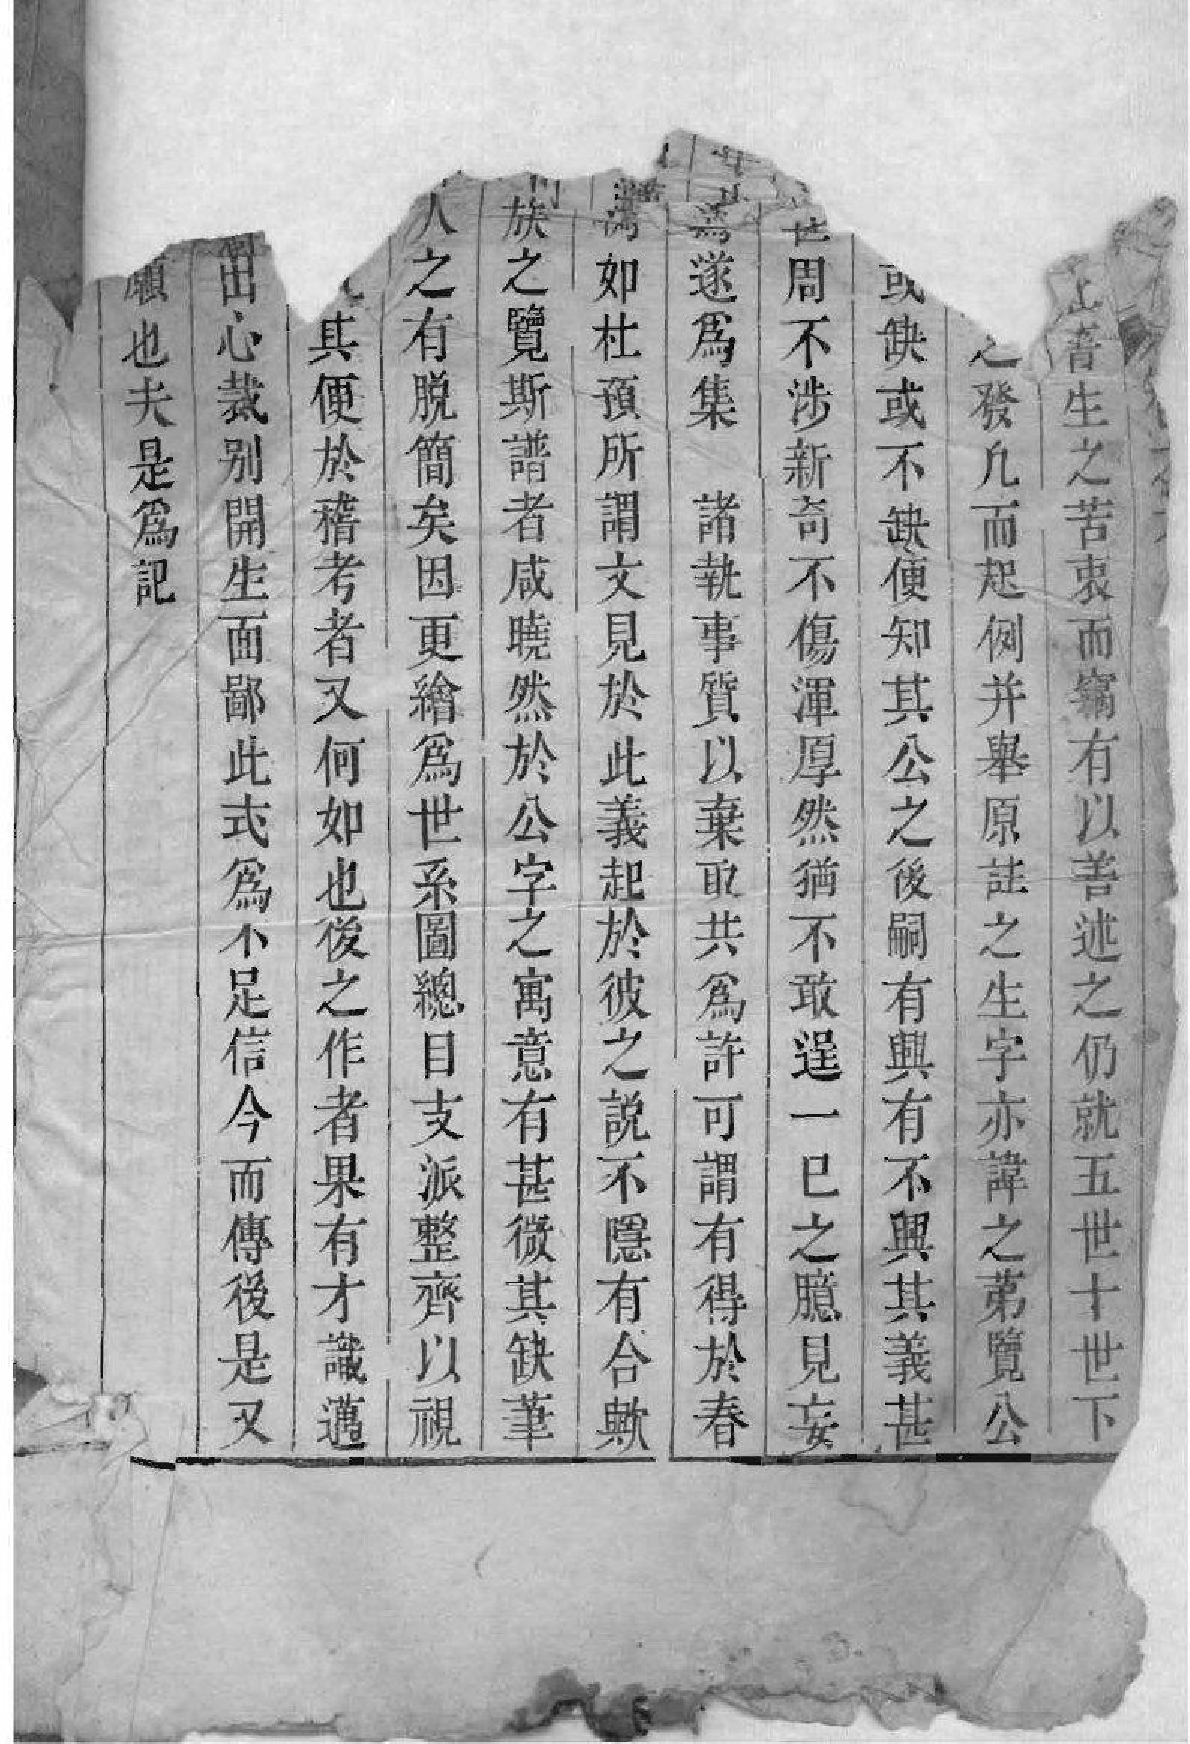 生之苦衷而竊有以善述之仍就五世十世下
之發凡而起例并舉原註之生字亦諱之弟覽公
或缺或不缺便知其公之後嗣有興有不興其義甚
甚周不涉新奇不傷渾厚然猶不敢逞一已之臆見妄
爲遂爲集 諸執事質以棄取共爲許可謂有得於春
如杜預所謂文見於此義起於彼之說不隱有合歟
族之覽斯譜者咸曉然於公字之寓意有甚微其缺筆
人之有脱簡矣因更繪爲世系圖總目支派整齊以視
其便於稽考者又何如也後之作者果有才識邁
出心裁别開生面鄙此式爲不足信今而傳後是又
願也夫是爲記